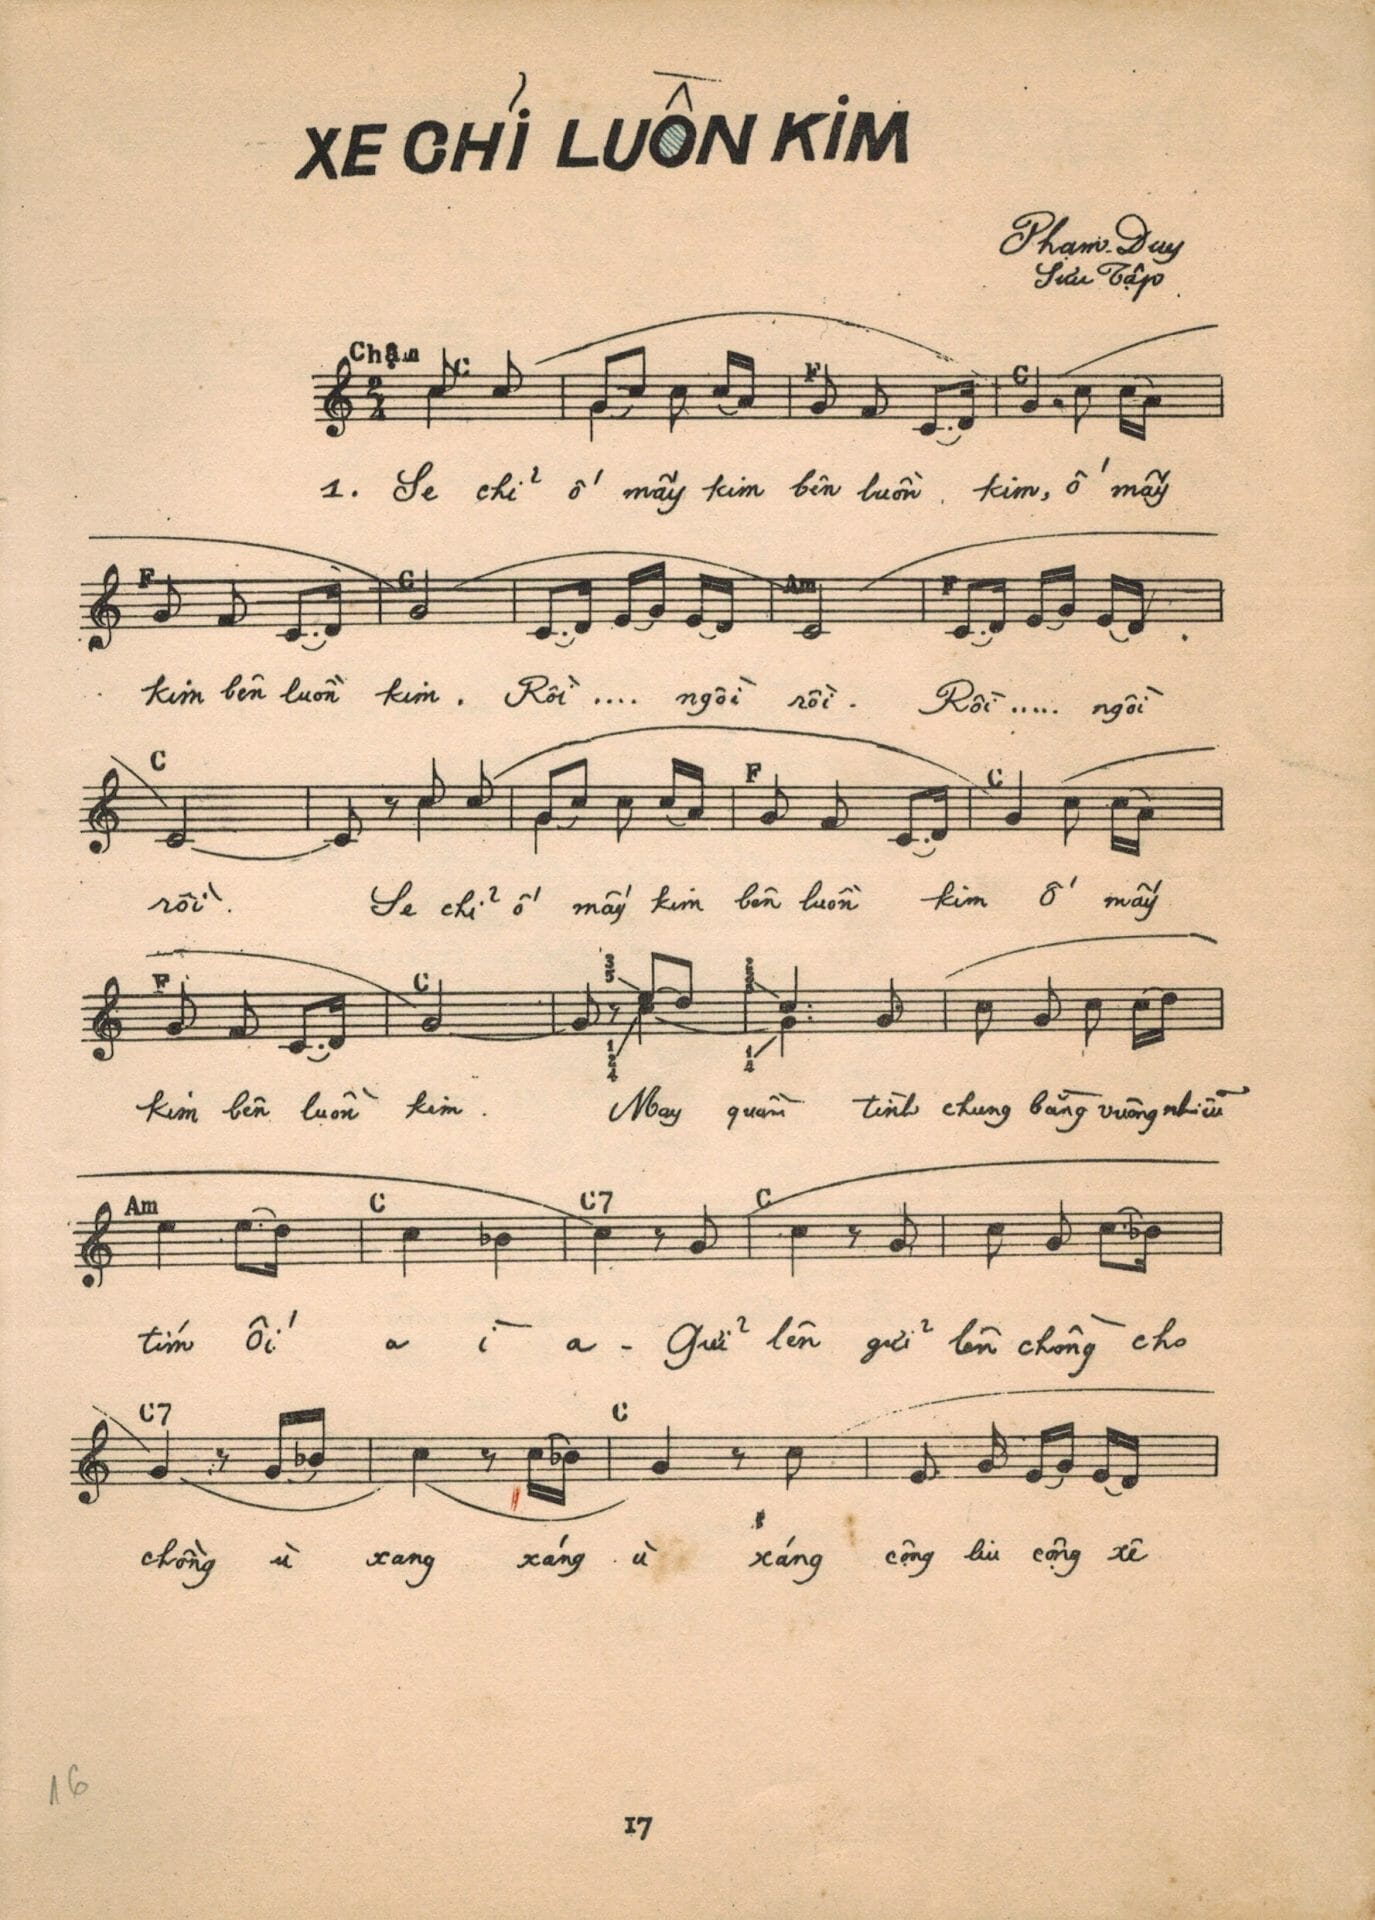 XE CHỈ LUỒN KIM
Phạm-Duy
Sưu Tập
Chậm C F C
2 4
1. Se chỉ ố mấy kim bên luồn kim, ố mấy
F C Am F
kim bên luồn kim. Rồi.... ngồi rồi. Rồi..... ngồi
C F C
rồi. Se chỉ ố mấy kim bên luồn kim ố mấy
F C
kim bên luồn kim. May quần tình chung bằng vuông nhiễu
Am C C7 C
tím ối a ì a - Gửi lên gửi lên chồng cho
C7 C
chồng ù xang xáng ù xáng cộng liu cộng xê
16
17